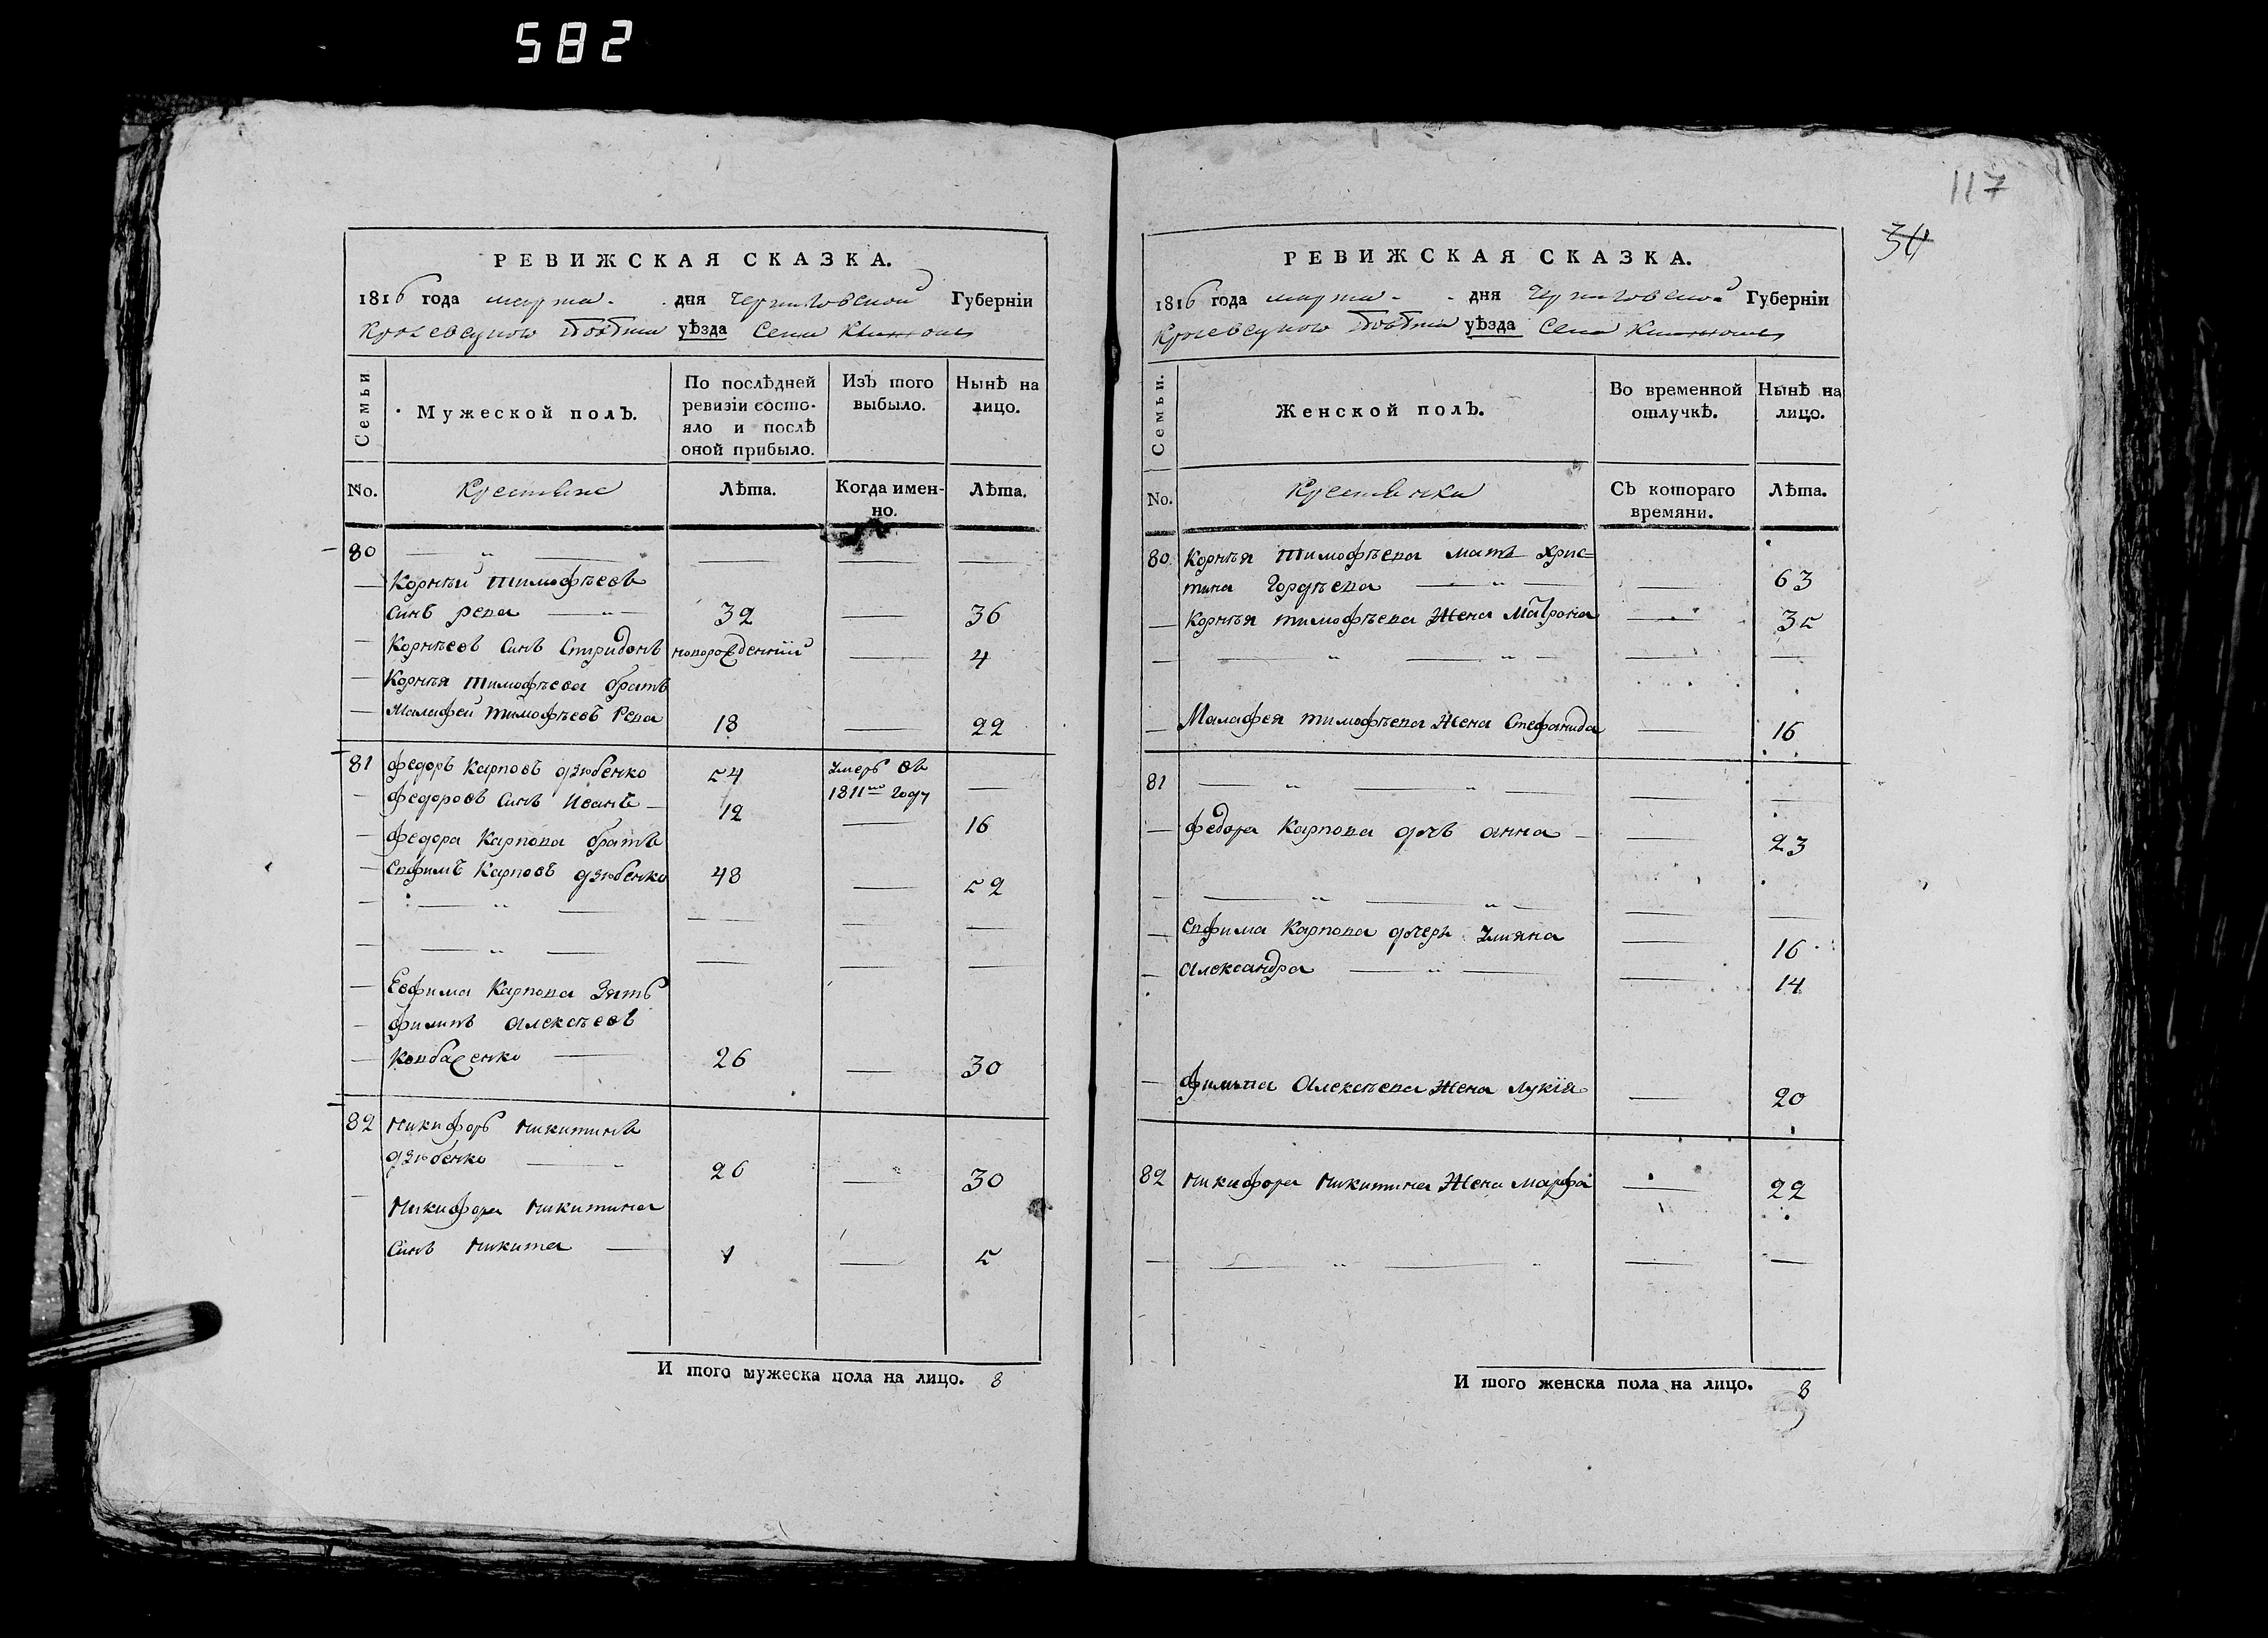 582
117
34
РЕВИЖСКАЯ СКАЗКА.
1816 года марта дня Черниговской Губерніи
Кролевецкого повѣта уѣзда Села
Семьи
Мужеской полъ.
По послѣдней ревизіи состо-
яло и послѣ оной прибыло.
Изъ того выбыло.
Нынѣ на лицо.
No.
Крестьяне
Лѣта.
Когда имен-
но.
Лѣта.
80
Корнѣй Тимофѣевъ
синъ Рева 32 36
Корнѣевъ синъ Спиридонъ новорожденній 4
Корнѣя Тимофѣева братъ
Малафей Тимофѣевъ Рева 18 22
81 Федоръ Карповъ Дзюбенко 54 умеръ въ
1811мъ году
Федоровъ синъ Иванъ 12 16
Федора Карпова братъ
Евфимъ Карповъ Дзюбенко 48 52
Евфима Карпова зять
Филипъ Алексѣевъ
Ковбасенко 26 30
82 Никифоръ Никитинъ
Дзюбенко 26 30
Никифора Никитина
синъ Никита 1 5
И того мужеска пола на лицо. 8
РЕВИЖСКАЯ СКАЗКА.
1816 года марта дня Черниговской Губерніи
Кролевецкого повѣта уѣзда Села
Семьи.
Женской полъ.
Во временной отлучкѣ.
Нынѣ на лицо.
No.
Крестьянки
Съ котораго времяни.
Лѣта.
80 Корнѣя Тимофѣева мать Хрис=
тина Гордѣева 63
Корнѣя Тимофѣева жена Матрона 35
Малафея Тимофѣева жена Стефанида 16
81
Федора Карпова дочь Анна 23
Евфима Карпова дочерь Улияна 16
Александра 14
Филипа Алексѣева жена Лукія 20
82 Никифора Никитина жена Марфа 22
И того женска пола на лицо. 8